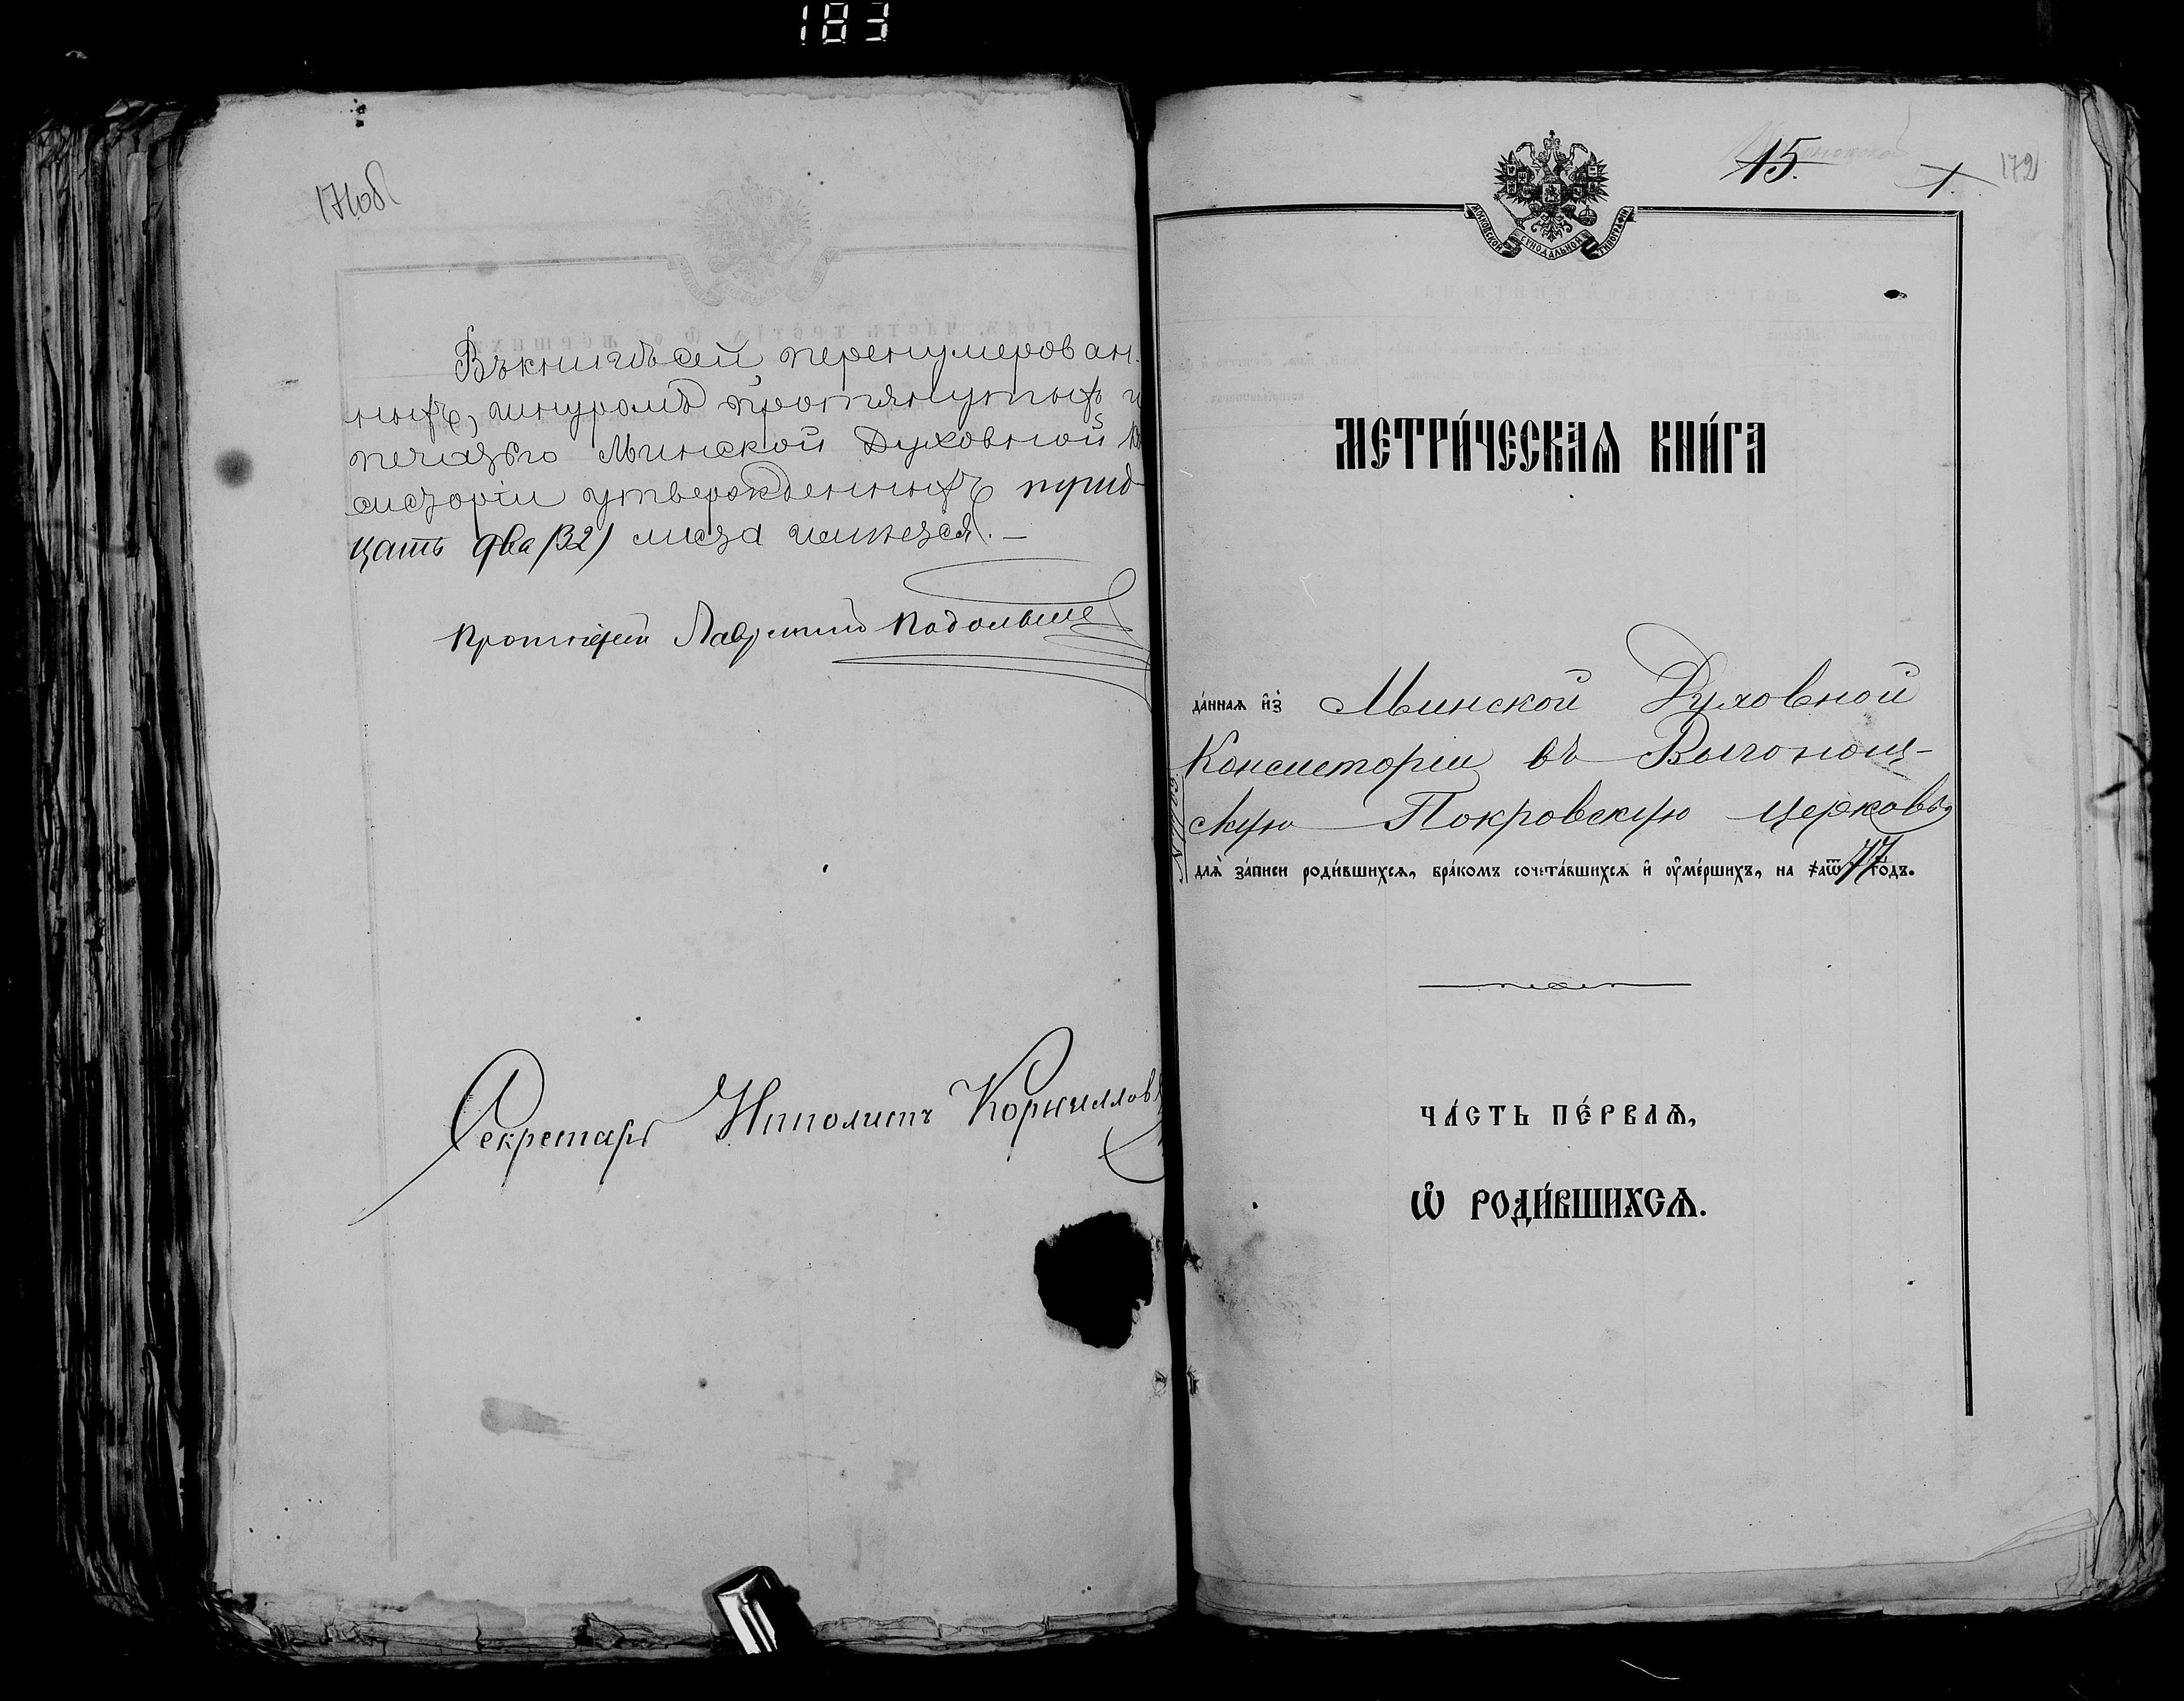 183
171об
Въ книгѣ сей перенумерован-
ныхъ, шнуромъ протянутыхъ и
печатью Минской Духовной К
систоріи утвержденныхъ трид-
цать два (32) листа имѣется. —
Протоіерей Лаврентій Подольск
Секретарь Ипполитъ Корнилловъ
15.
1.
172
МОСКОВСКОЙ СѴНОДАЛЬНОЙ ТИПОГРАФІИ
МЕТРИ́ЧЕСКАѦ КНИ́ГА
да́ннаѧ и҆з̾ Минской Духовной
Консисторіи въ Выгонощ-
скую Покровскую церковь,
для̀ за́писи роди́вшихсѧ, бра́комъ сочета́вшихсѧ и҆ ᲂу҆ме́ршихъ, на ҂аѿ 77 го́дъ.
ЧА́СТЬ ПЕ́РВАѦ,
Ѡ҆ РОДИ́ВШИХСѦ.